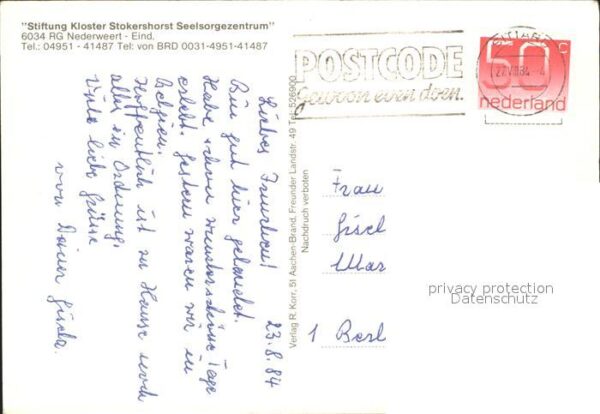 "Stiftung Kloster Stokershorst Seelsorgezentrum"
6034 RG Nederweert - Eind.
Tel.: 04951 - 41487 Tel: von BRD 0031-4951-41487
POSTCODE
gewoon even doen.
50 c
nederland
23.8.84
Liebes Frauchen!
Bin gut hier gelandet.
Habe schon wunderschöne Tage
erlebt, gestern waren wir in
Belgien.
Hoffentlich ist zu Hause noch
alles in Ordnung.
Viele liebe Grüsse
von Deiner Gisela.
Verlag R. Korr, 51 Aachen-Brand, Freunder Landstr. 49 Tel. 526900
Nachdruck verboten
Frau
Gisel
War
1 Berl
privacy protection
Datenschutz